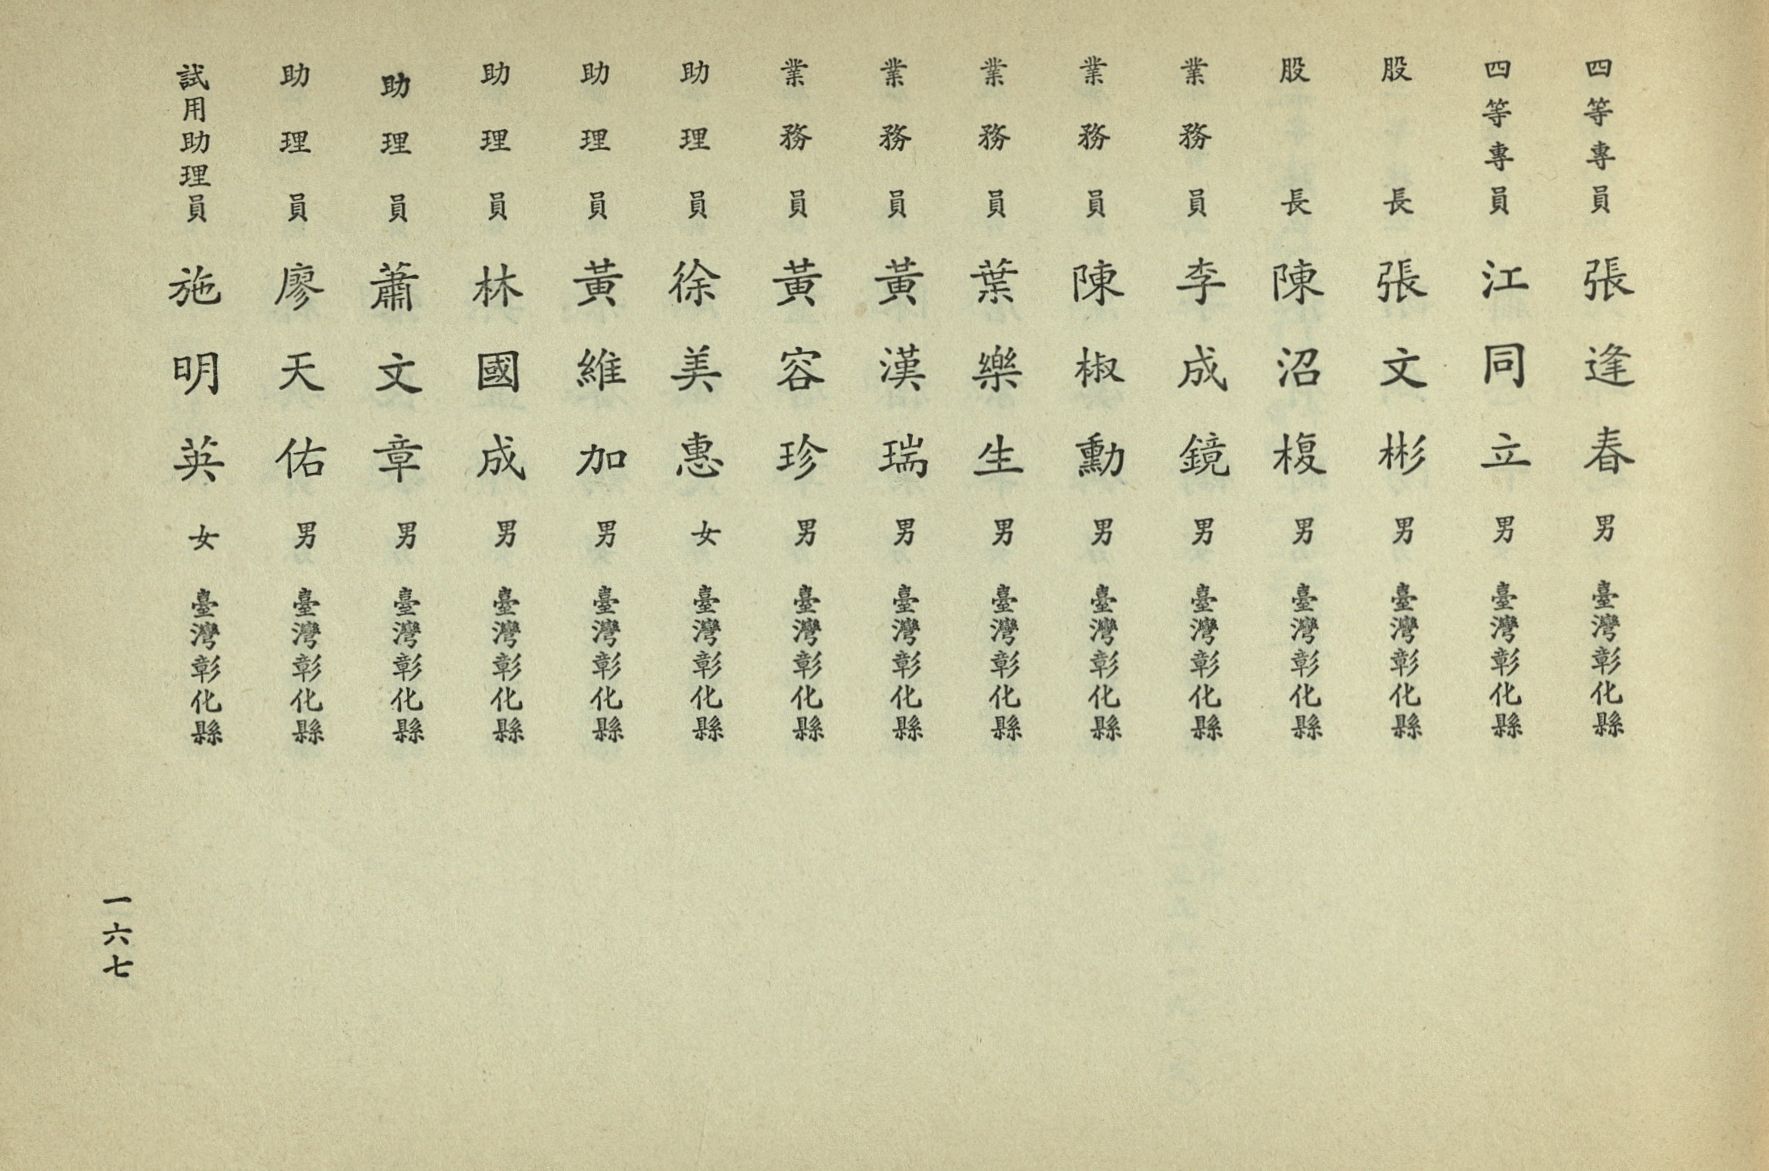 四等專員 張逢春 男 臺灣彰化縣
四等專員 江同立 男 臺灣彰化縣
股長 張文彬 男 臺灣彰化縣
股長 陳沼榎 男 臺灣彰化縣
業務員 李成鏡 男 臺灣彰化縣
業務員 陳椒勳 男 臺灣彰化縣
業務員 葉樂生 男 臺灣彰化縣
業務員 黃漢瑞 男 臺灣彰化縣
業務員 黃容珍 男 臺灣彰化縣
助理員 徐美惠 女 臺灣彰化縣
助理員 黃維加 男 臺灣彰化縣
助理員 林國成 男 臺灣彰化縣
助理員 蕭文章 男 臺灣彰化縣
助理員 廖天佑 男 臺灣彰化縣
試用助理員 施明英 女 臺灣彰化縣
一六七